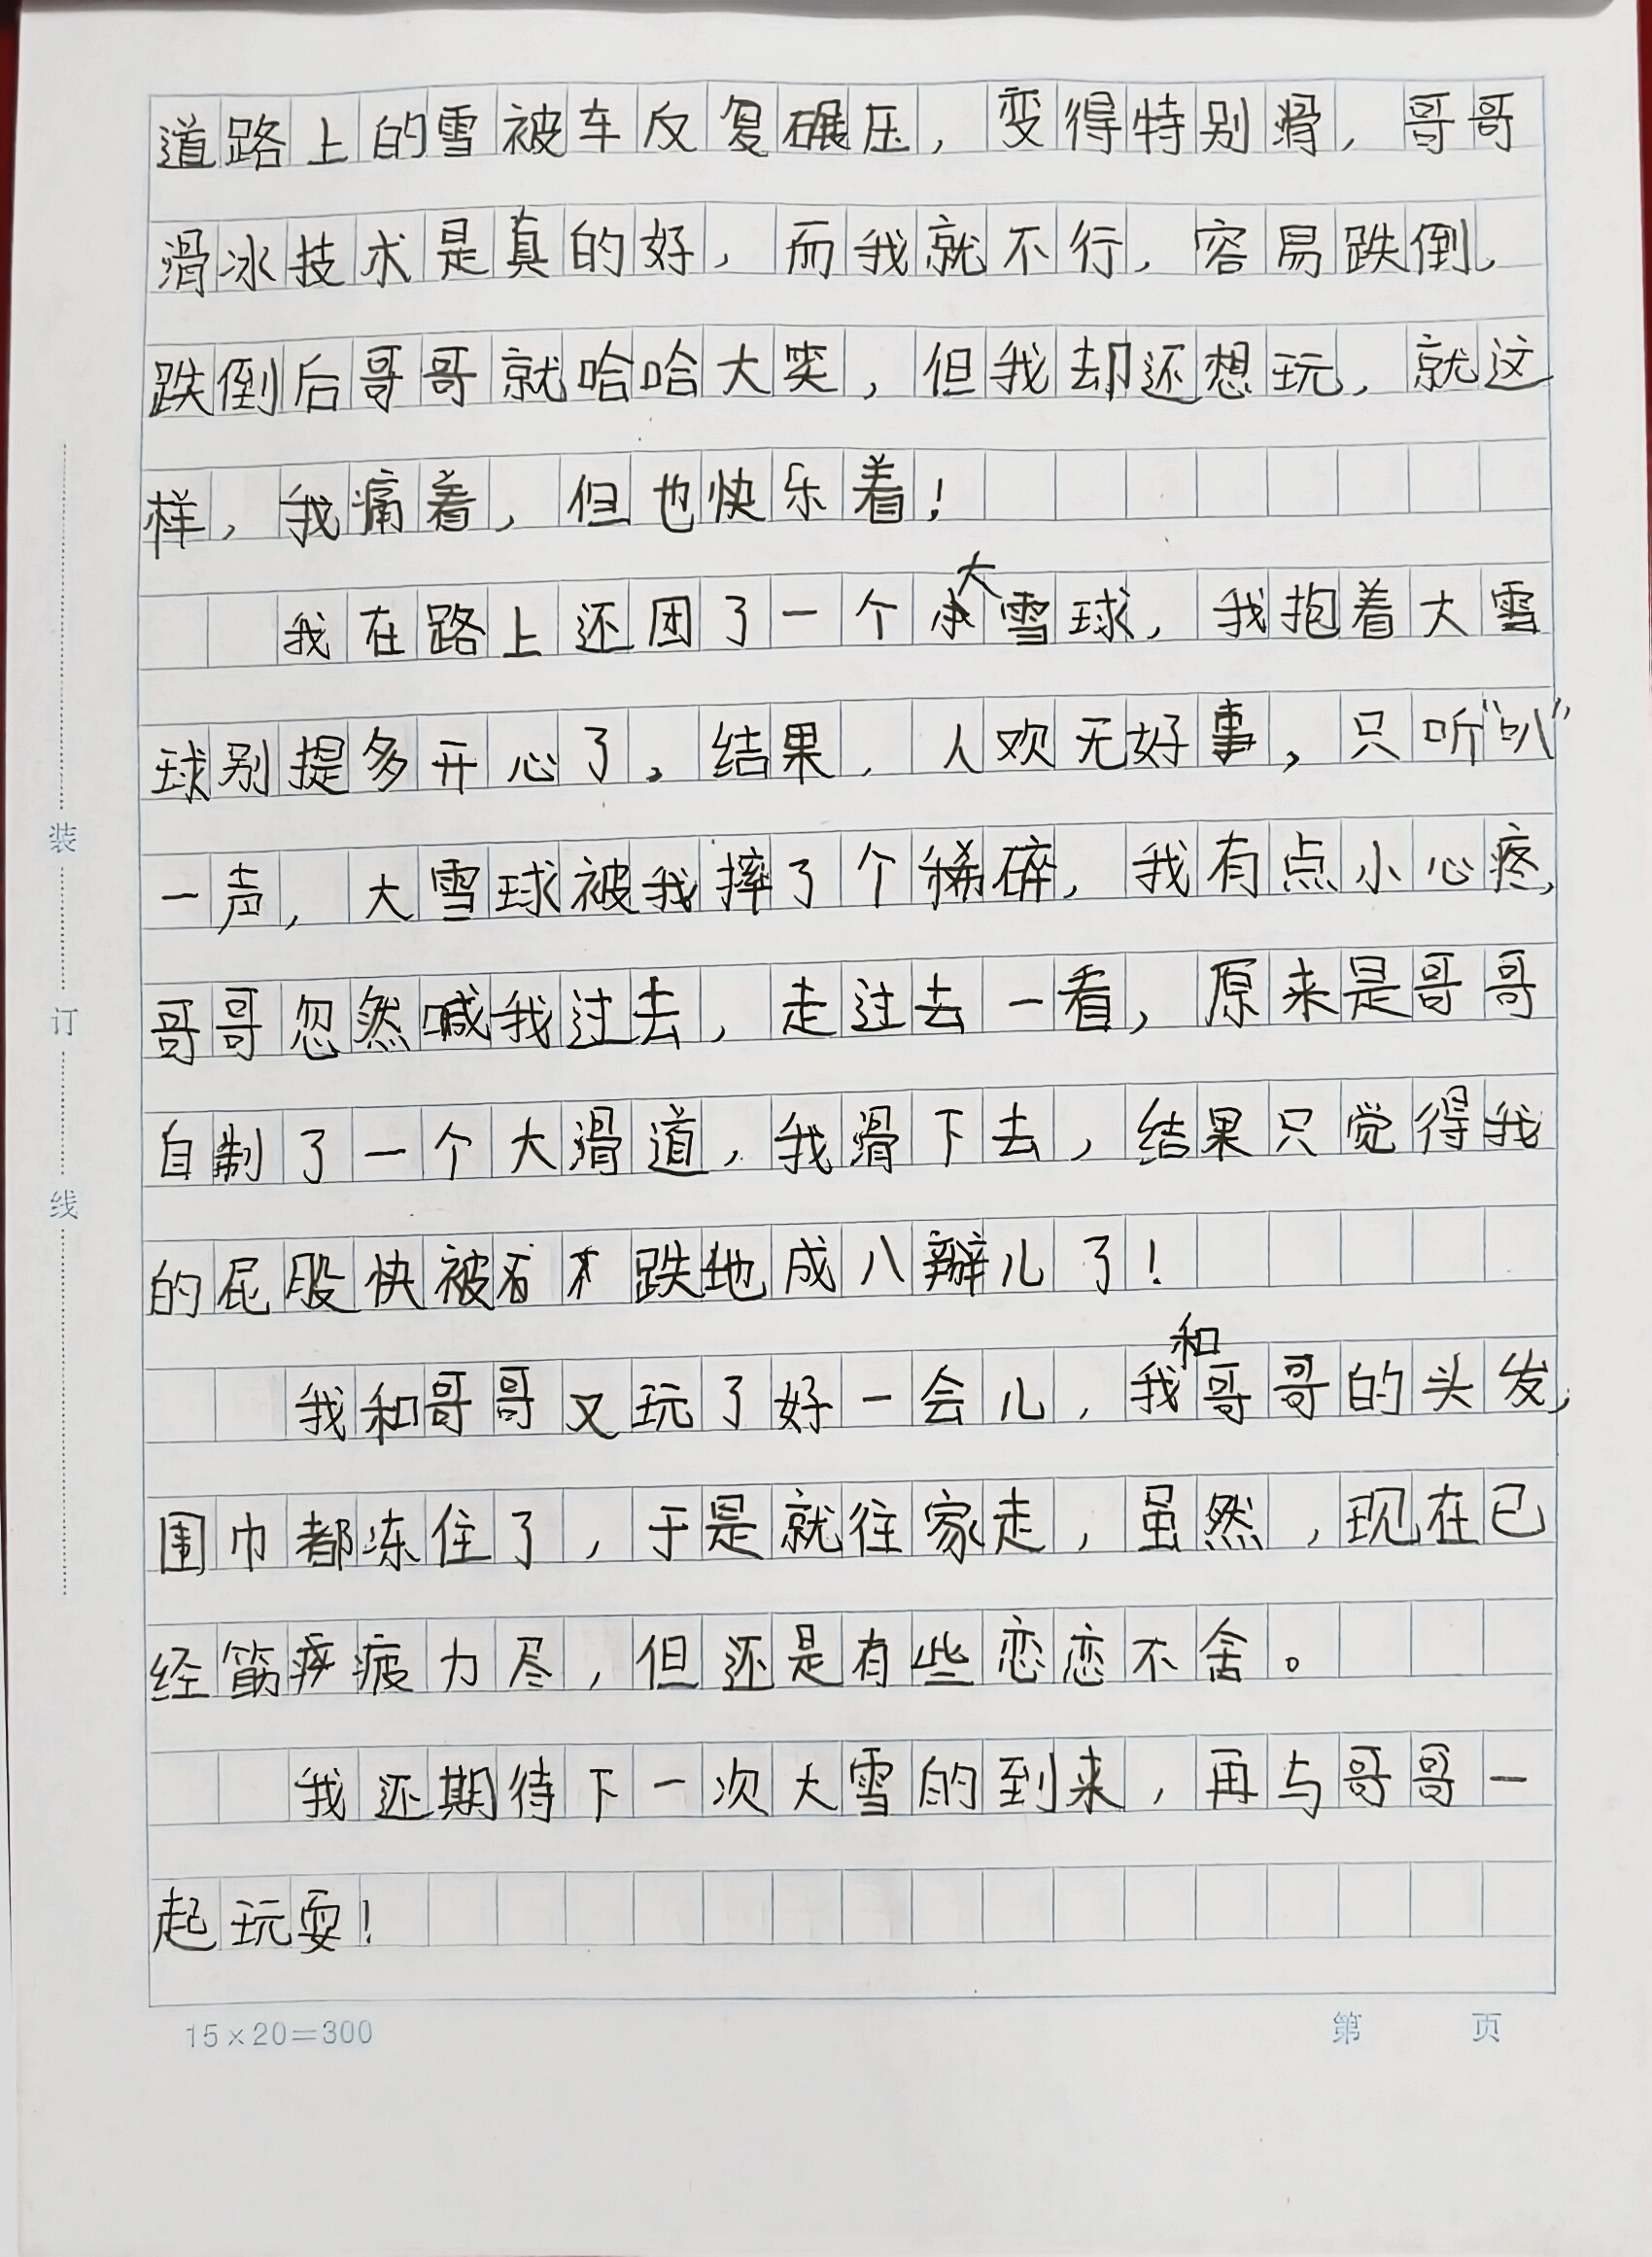 道路上的雪被车反复碾压，变得特别滑，哥哥
滑冰技术是真的好，而我就不行，容易跌倒，
跌倒后哥哥就哈哈大笑，但我却还想玩，就这
样，我痛着，但也快乐着！
大
我在路上还团了一个雪球，我抱着大雪
球别提多开心了。结果，人欢无好事，只听“叭”
一声，大雪球被我摔了个稀碎，我有点小心疼，
哥哥忽然喊我过去，走过去一看，原来是哥哥
自制了一个大滑道，我滑下去，结果只觉得我
的屁股快被跌地成八瓣儿了！
和
我和哥哥又玩了好一会儿，我哥哥的头发，
围巾都冻住了，于是就往家走，虽然，现在已
经筋疲力尽，但还是有些恋恋不舍。
我还期待下一次大雪的到来，再与哥哥一
起玩耍！
装
订
线
15×20=300
第 页